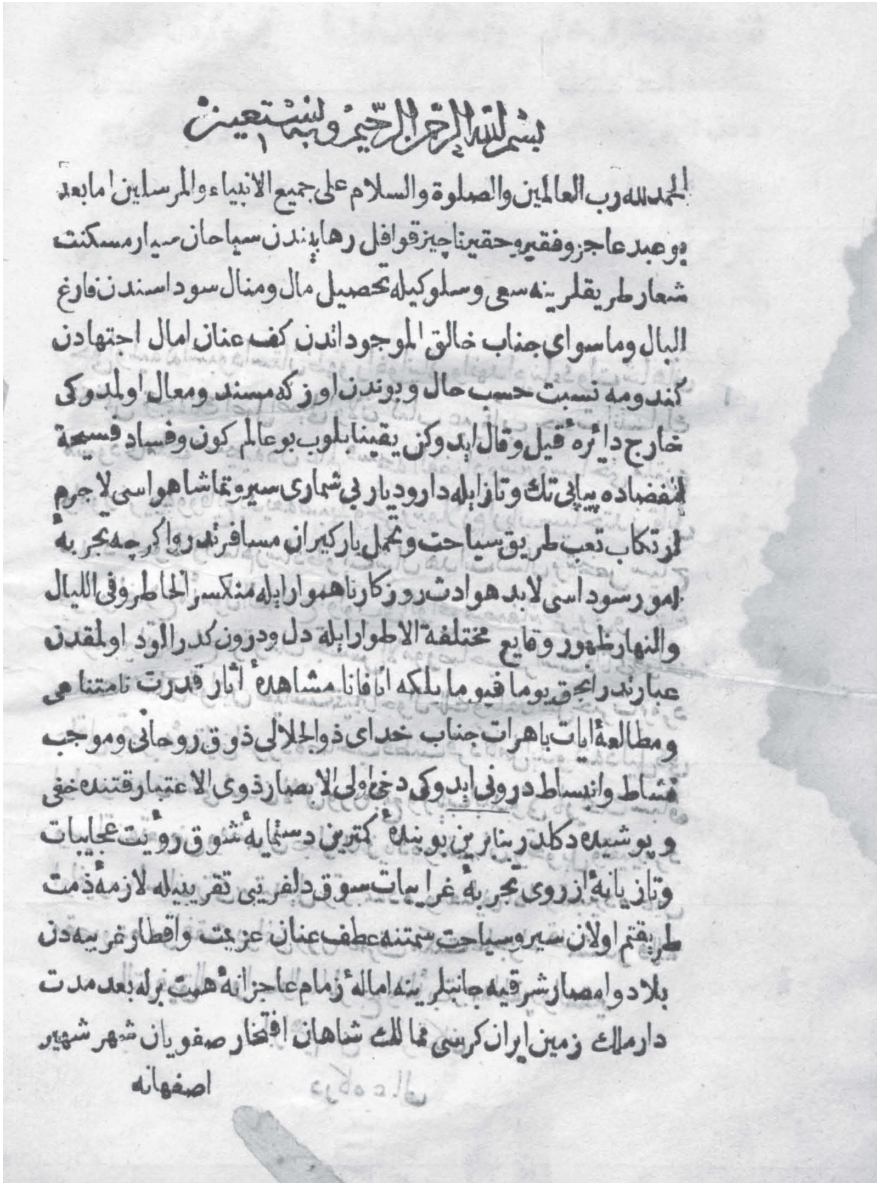 بسم الله الرحمن الرحيم وبه نستعين
الحمد لله رب العالمين والصلوة والسلام على جميع الانبياء والمرسلين اما بعد
بو عبد عاجز وفقير وحقير ناچيز قوافل رهابيندن سياحان سيار مسكنت
شعار طريقلرينه سعى وسلوكيله تحصيل مال ومنال سوداسندن فارغ
البال وماسواى جناب خالق الموجوداندن كف عنان امال اجتهادن
كندومه نسبت حسب حال وبوندن اوزكه مسند ومعال اولمدوكى
خارج دائرهٔ قيل وقال ايدوكن يقينا بلوب بو عالم كون وفساد فسيحة
لفضاده پياپى تك وتاز ايله دار وديار بى شمارى سير وتماشا هواسى لاجرم
مرتكاب تعب طريق سياحت وتحمل باركيران مسافرتدر واكرچه تجربهٔ
امور سوداسى لابد هوادث روزكار ناهموار ايله منكسر الخاطر وفى الليال
والنهار ظهور وقايع مختلفة الاطوار ايله دل ودرون كدر الود اولمقدن
عبارتدر انجق يوما فيوما بلكه انافانا مشاهدهٔ اثار قدرت نامتناهى
ومطالعهٔ ايات باهرات جناب خداى ذوالجلالى ذوق روحانى وموجب
نشاط وانبساط درونى ايدوكى دخى اولى الابصار ذوى الاعتبار قتنده خفى
وپوشيده دكلدر بنابرين بو بندهٔ كمترين دستمايهٔ شوق رؤيت عجايبات
وتازيانهٔ ازروى تجربهٔ غرايبات سوق دلفريبى تقريبيله لازمهٔ ذمت
طريقتم اولان سير وسياحت سمتنه عطف عنان عزيمت واقطار غريبه دن
بلاد وامصار شرقيه جانبلرينه امالهٔ زمام عاجزانهٔ همت برله بعد مدت
دار ملك زمين ايران كرسى ممالك شاهان افتخار صفويان شهر شهير
اصفهانه